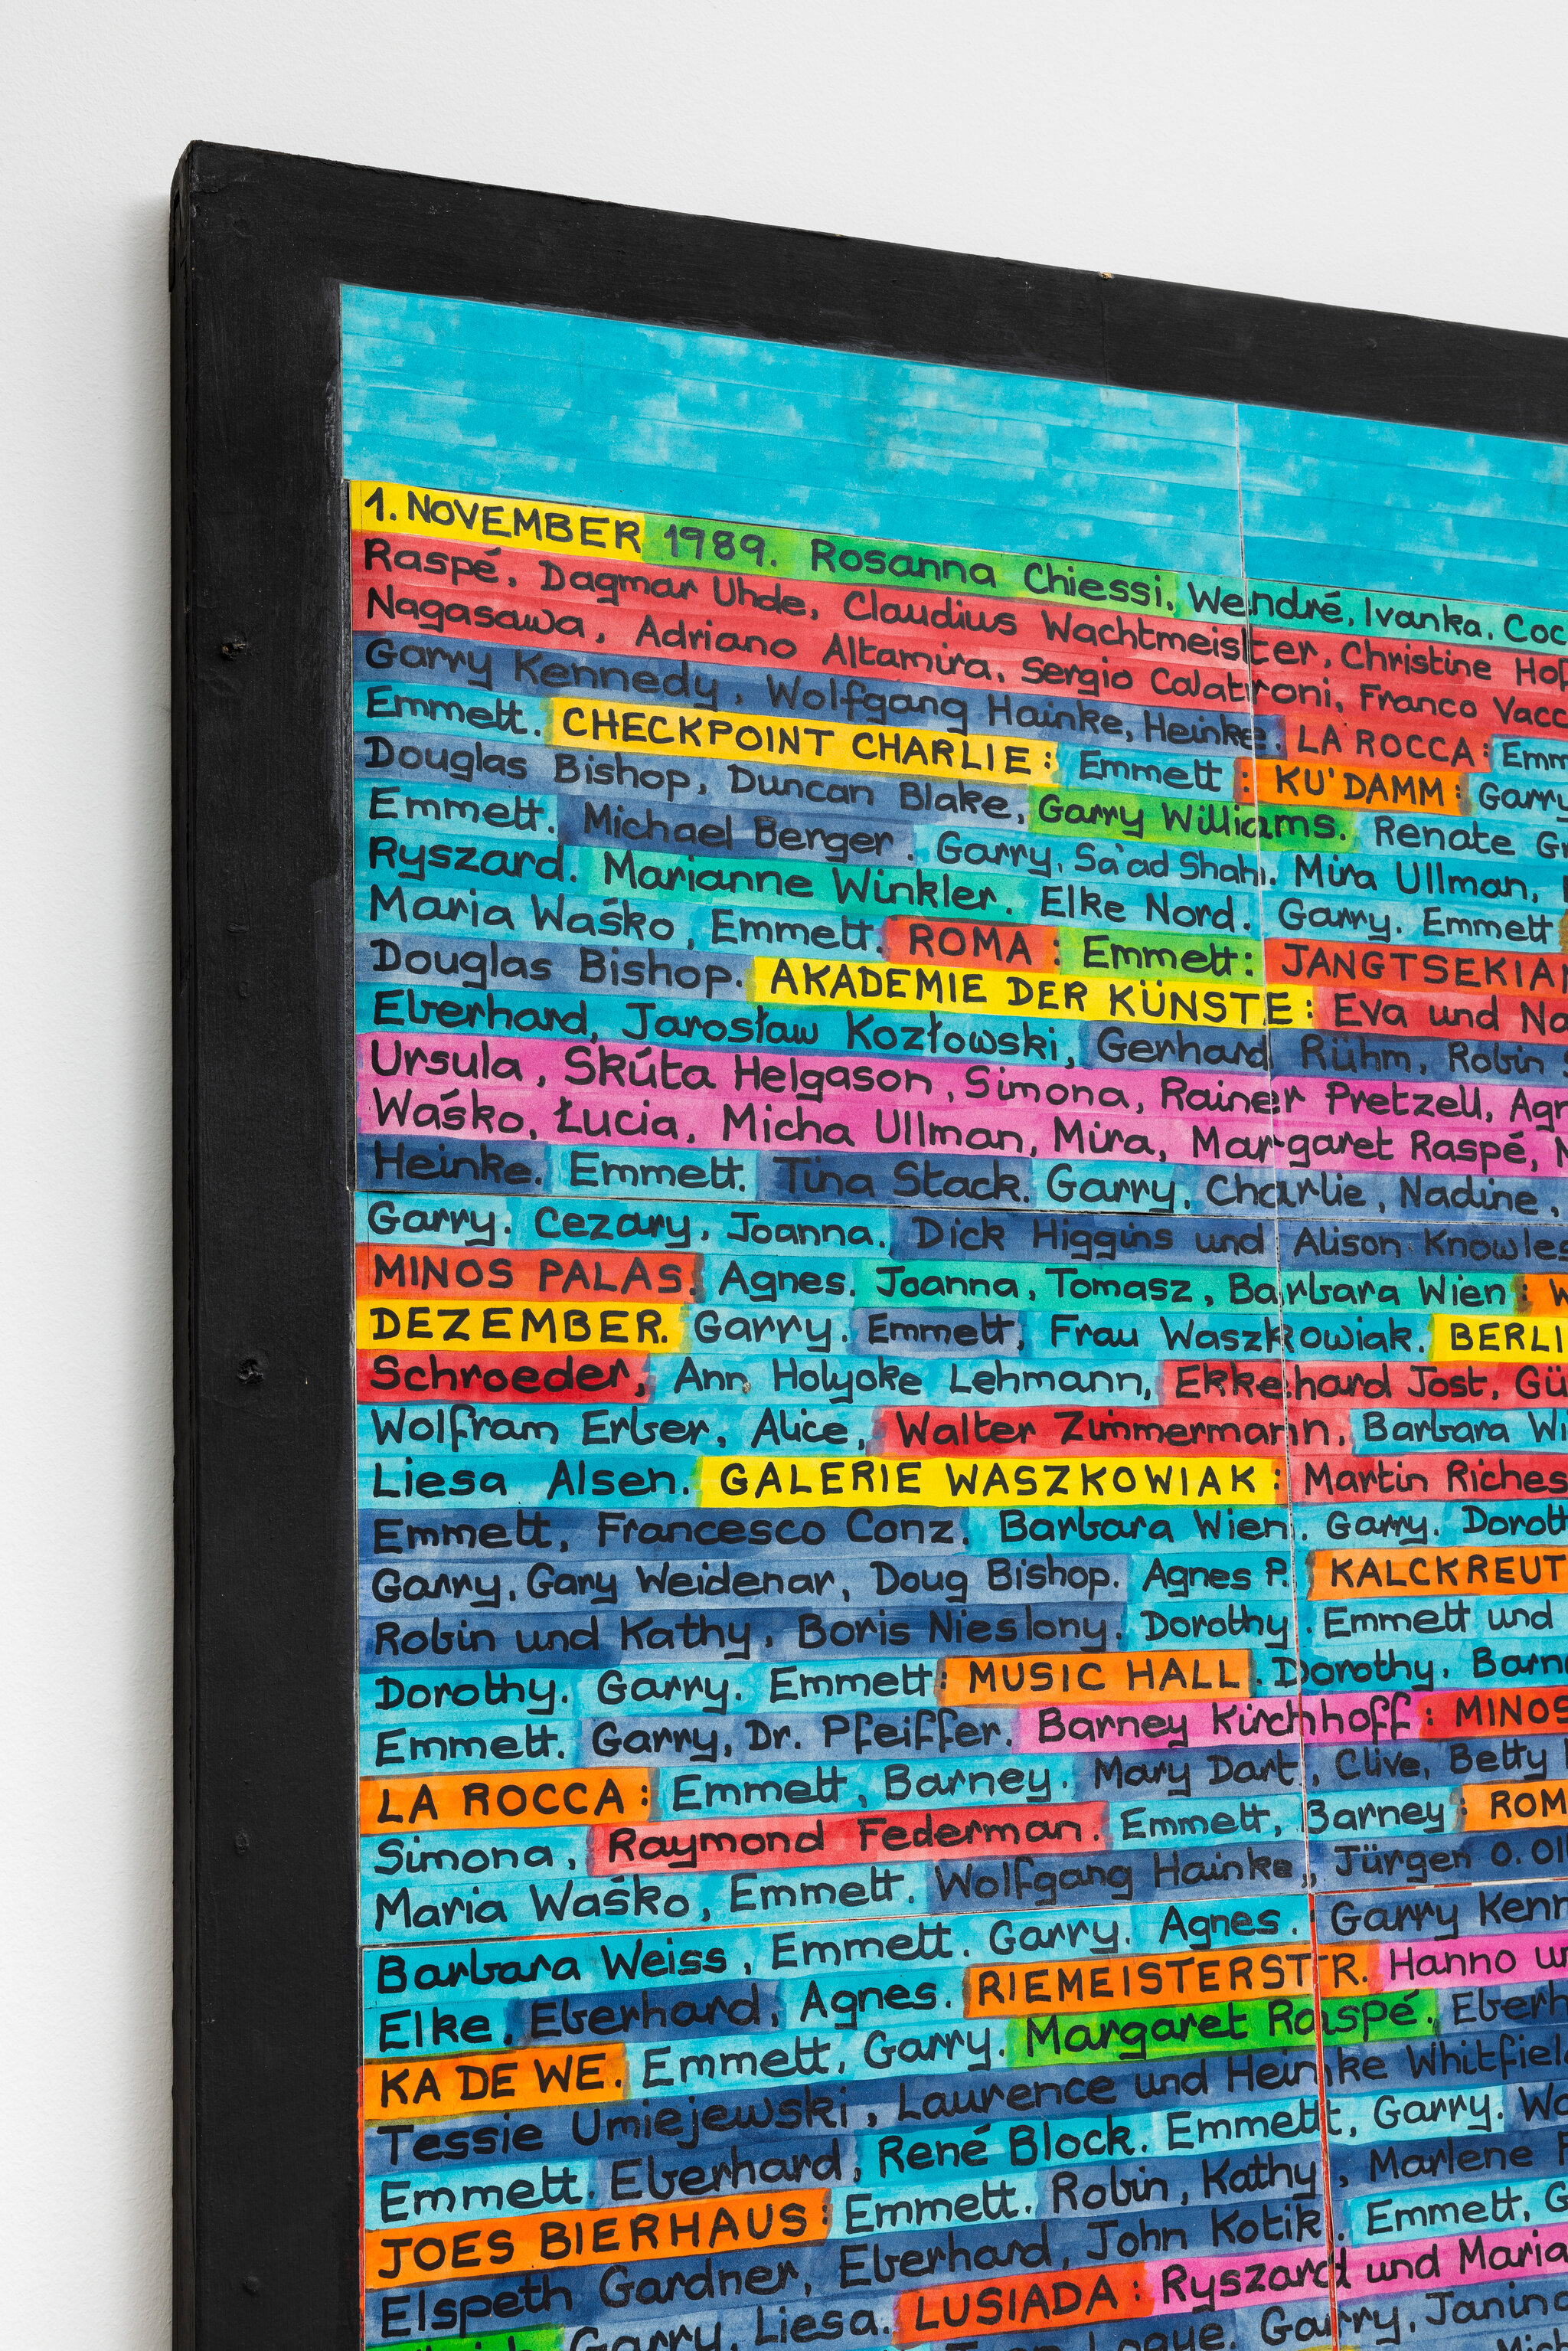 1. NOVEMBER 1989. Rosanna Chiessi, Wendré, Ivanka,
Raspé, Dagmar Uhde, Claudius Wachtmeister, Christine
Nagasawa, Adriano Altamira, Sergio Calatroni, Franco
Garry Kennedy, Wolfgang Hainke, Heinke. LA ROCCA:
Emmett. CHECKPOINT CHARLIE: Emmett: KU'DAMM: Garry
Douglas Bishop, Duncan Blake, Garry Williams. Renate
Emmett. Michael Berger. Garry, Sa'ad Shah. Mira Ullman,
Ryszard. Marianne Winkler. Elke Nord. Garry. Emmett
Maria Waśko, Emmett. ROMA: Emmett: JANGTSEKIA
Douglas Bishop. AKADEMIE DER KÜNSTE: Eva und
Eberhard, Jarosław Kozłowski, Gerhard Rühm, Robin
Ursula, Skúta Helgason, Simona, Rainer Pretzell,
Waśko, Łucia, Micha Ullman, Mira, Margaret Raspé,
Heinke. Emmett. Tina Stack. Garry, Charlie, Nadine,
Garry. Cezary, Joanna. Dick Higgins und Alison Knowle
MINOS PALAS. Agnes. Joanna, Tomasz, Barbara Wien:
DEZEMBER. Garry. Emmett, Frau Waszkowiak. BERLI
Schroeder, Ann Holyoke Lehmann, Ekkehard Jost,
Wolfram Erber, Alice, Walter Zimmermann, Barbara Wi
Liesa Alsen. GALERIE WASZKOWIAK: Martin Riches
Emmett, Francesco Conz. Barbara Wien. Garry. Dorot
Garry, Gary Weidenar, Doug Bishop. Agnes P. KALCKREUT
Robin und Kathy, Boris Nieslony. Dorothy. Emmett und
Dorothy. Garry. Emmett: MUSIC HALL. Dorothy, Barn
Emmett. Garry, Dr. Pfeiffer. Barney Kirchhoff: MINOS
LA ROCCA: Emmett, Barney. Mary Dart, Clive, Betty
Simona, Raymond Federman. Emmett, Barney: ROM
Maria Waśko, Emmett. Wolfgang Hainke, Jürgen O. Ol
Barbara Weiss, Emmett. Garry. Agnes. Garry Kenn
Elke, Eberhard, Agnes. RIEMEISTERSTR. Hanno
KA DE WE. Emmett, Garry. Margaret Raspé. Eberh
Tessie Umiejewski, Laurence und Heinke Whitfiel
Emmett. Eberhard, René Block. Emmett, Garry.
JOES BIERHAUS: Emmett. Robin, Kathy, Marlene
Elspeth Gardner, Eberhard, John Kotik. Emmett,
Garry, Liesa. LUSIADA: Ryszard und Maria
Garry, Janina